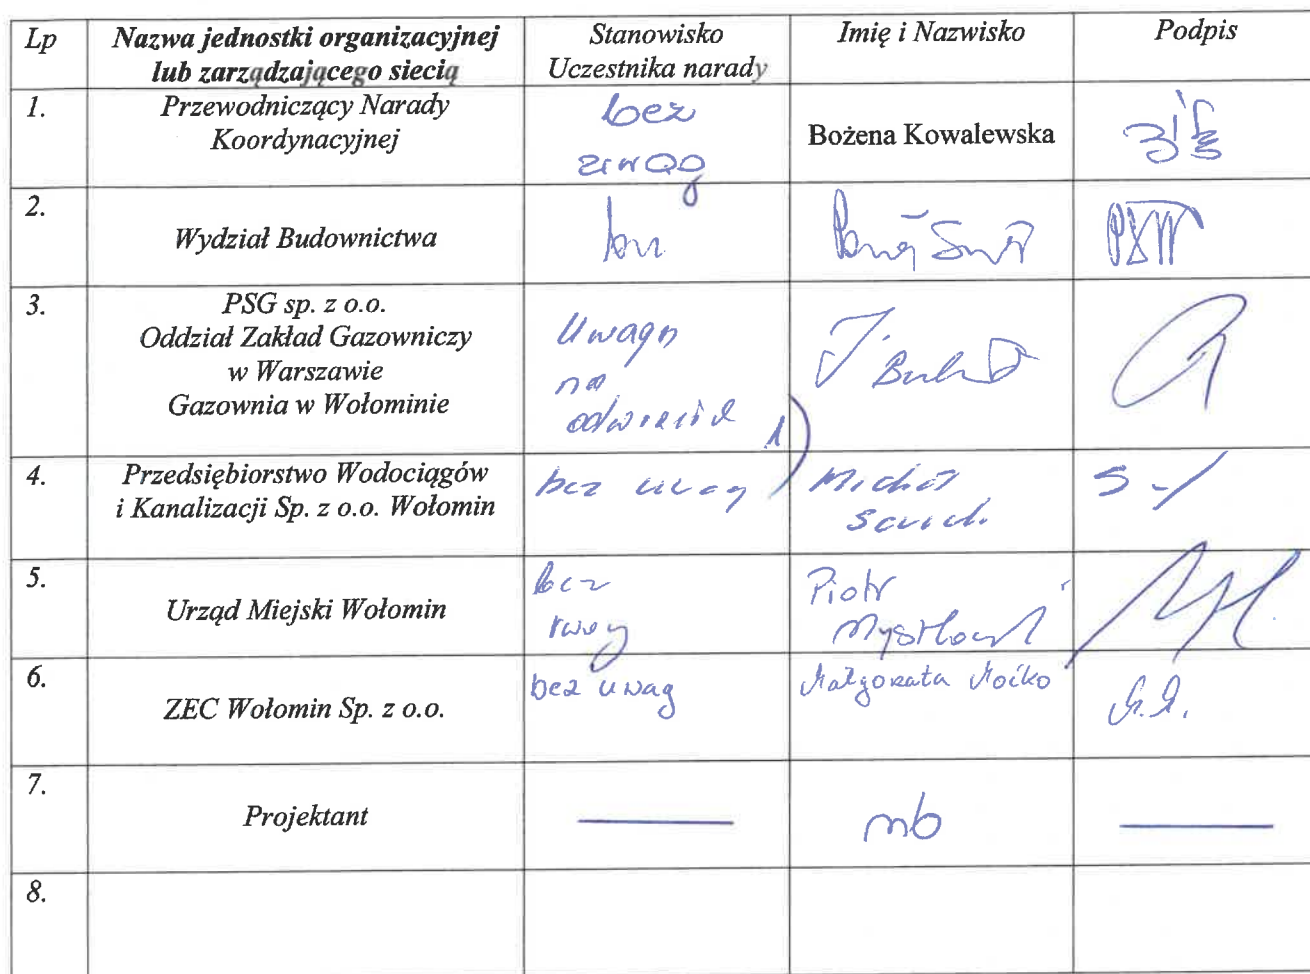 Lp
Nazwa jednostki organizacyjnej
lub zarządzającego siecią
Stanowisko
Uczestnika narady
Imię i Nazwisko
Podpis
1.
Przewodniczący Narady
Koordynacyjnej
bez
uwag
Bożena Kowalewska
2.
Wydział Budownictwa
3.
PSG sp. z o.o.
Oddział Zakład Gazowniczy
w Warszawie
Gazownia w Wołominie
Uwagi
na
odwrocie 1)
J.
4.
Przedsiębiorstwo Wodociągów
i Kanalizacji Sp. z o.o. Wołomin
bez uwag
Michał
5.
Urząd Miejski Wołomin
bez
uwag
Piotr
6.
ZEC Wołomin Sp. z o.o.
bez uwag
Małgorzata
7.
Projektant
nb
8.